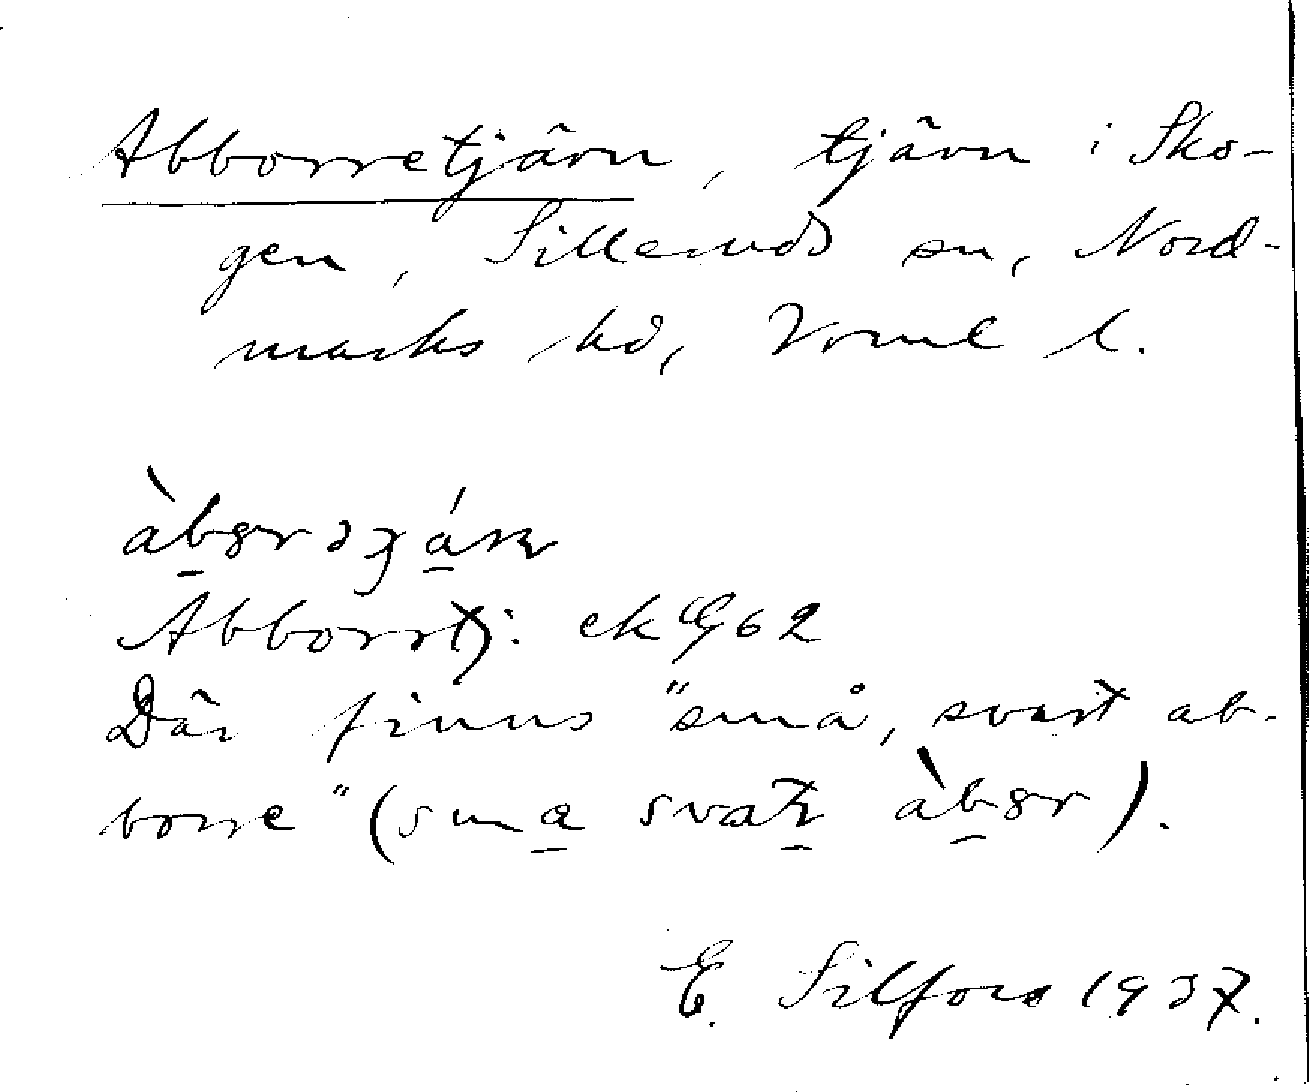 Abborretjärn, tjärn i Sko-
gen, Silleruds sn, Nord-
marks hd, Vrml l.
àbər
Abborrtj: ek G62
Där finns "små, svart ab-
borre" (sma svat àbər).
E. Silfors 1937.